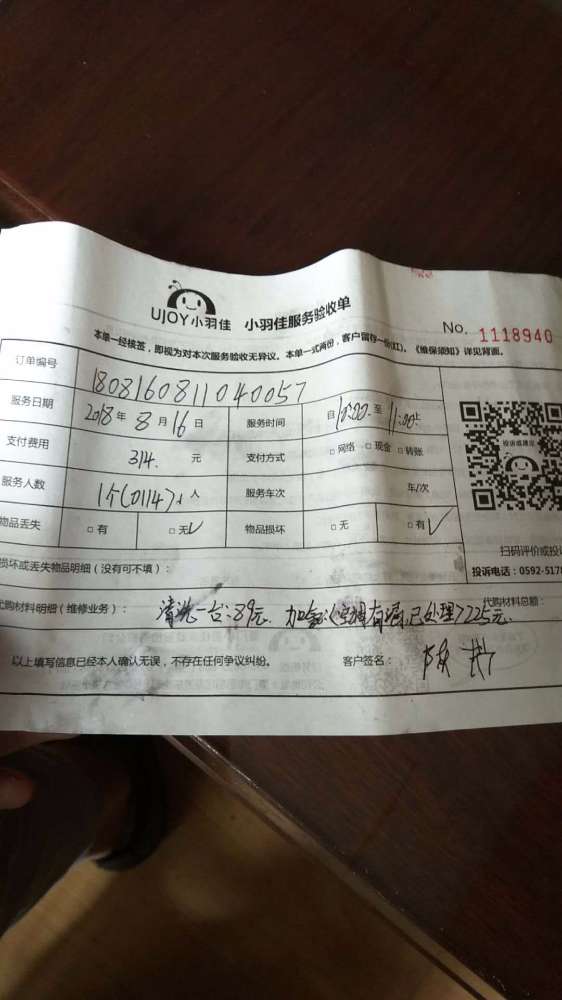 UJOY小羽佳 小羽佳服务验收单
No. 1118940
本单一经核签，即视为对本次服务验收无异议。本单一式两份，客户留存一份(红)。《维保须知》详见背面。
订单编号 1808160811040057
服务日期 2018年8月16日 服务时间 自10:00至11:00止
支付费用 314.元 支付方式 □网络 □现金 □转账
服务人数 1个(0114)人 服务车次 车/次
物品丢失 □有 □无✓ 物品损坏 □无 □有✓
投诉或建议
扫码评价或投
损坏或丢失物品明细（没有可不填）：
投诉电话：0592-517
代购材料明细（维修业务）： 清洗一台:89元. 加氟(空调有漏,已处理)225元.
代购材料总额：
以上填写信息已经本人确认无误，不存在任何争议纠纷。 客户签名：